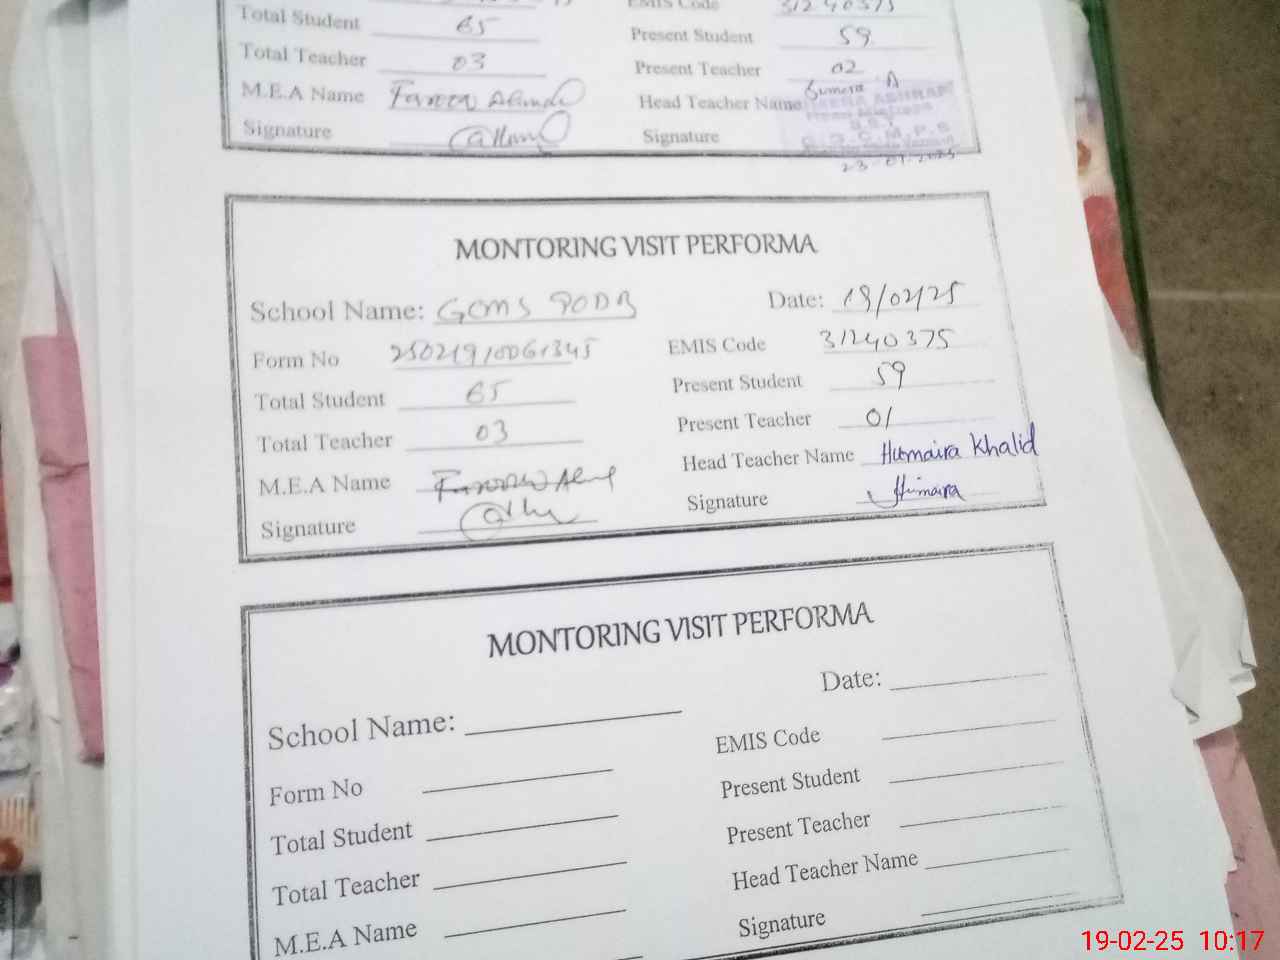 EMIS Code 31240375
Total Student 65 Present Student 59
Total Teacher 03 Present Teacher 02
M.E.A Name Head Teacher Name Sumera A
Signature Signature
Head Mistress
G.G.C.M.P.S
MONTORING VISIT PERFORMA
School Name: GCMS Date: 19/02/25
Form No 25021910061345 EMIS Code 31240375
Total Student 65 Present Student 59
Total Teacher 03 Present Teacher 01
M.E.A Name Head Teacher Name Humaira Khalid
Signature Signature Humaira
MONTORING VISIT PERFORMA
School Name: Date:
Form No EMIS Code
Total Student Present Student
Total Teacher Present Teacher
M.E.A Name Head Teacher Name
Signature
19-02-25 10:17